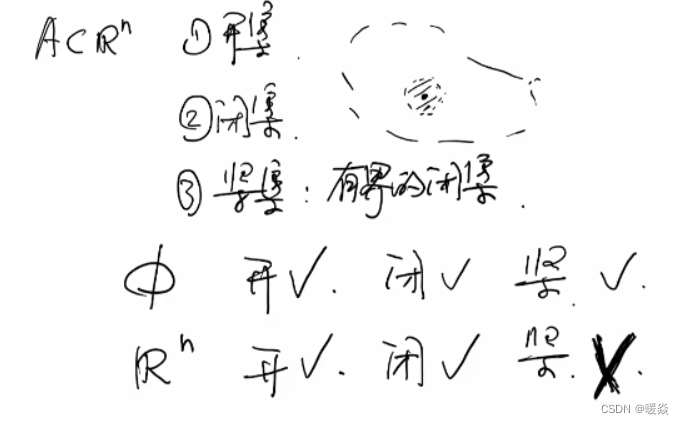 A⊂ℝⁿ ① 开集.
② 闭集.
③ 紧集：有界的闭集.
ϕ 开✓. 闭✓ 紧✓.
ℝⁿ 开✓. 闭✓ 紧. X.
CSDN @暖焱